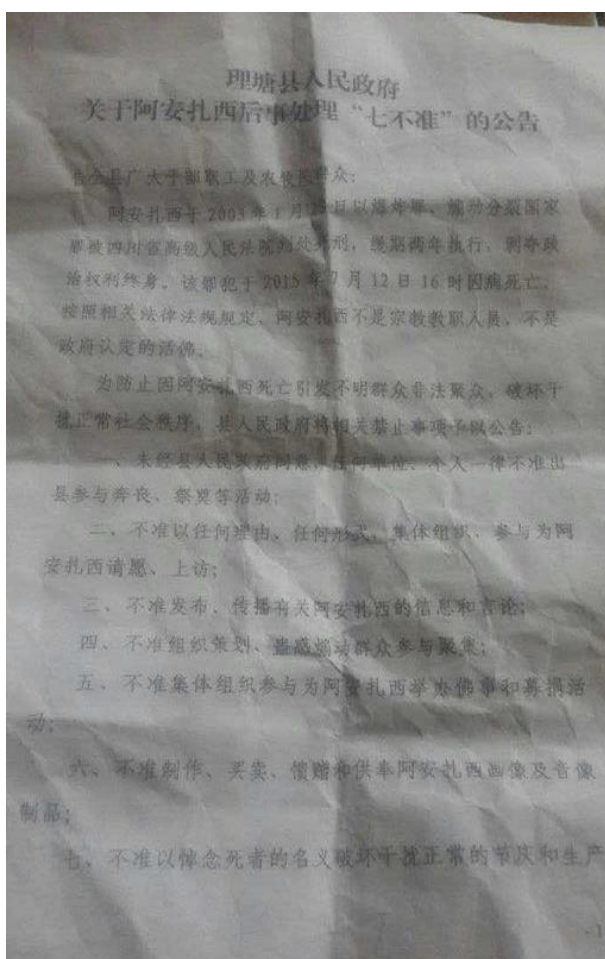 理塘县人民政府
关于阿安扎西后事处理“七不准”的公告
告全县广大干部职工及农牧民群众：
阿安扎西于2003年1月日以爆炸罪、煽动分裂国家
罪被四川省高级人民法院判处死刑，缓期两年执行，剥夺政
治权利终身。该罪犯于2015年7月12日16时因病死亡，
按照相关法律法规规定，阿安扎西不是宗教教职人员，不是
政府认定的活佛。
为防止因阿安扎西死亡引发不明群众非法聚众、破坏干
扰正常社会秩序，县人民政府将相关禁止事项予以公告：
一、未经县人民政府同意，任何单位、个人一律不准出
县参与奔丧、祭奠等活动；
二、不准以任何理由、任何形式，集体组织、参与为阿
安扎西请愿、上访；
三、不准发布、传播有关阿安扎西的信息和言论；
四、不准组织策划、蛊惑煽动群众参与聚集；
五、不准集体组织参与为阿安扎西举办佛事和募捐活
动；
六、不准制作、买卖、馈赠和供奉阿安扎西画像及音像
制品；
七、不准以悼念死者的名义破坏干扰正常的节庆和生产
-1